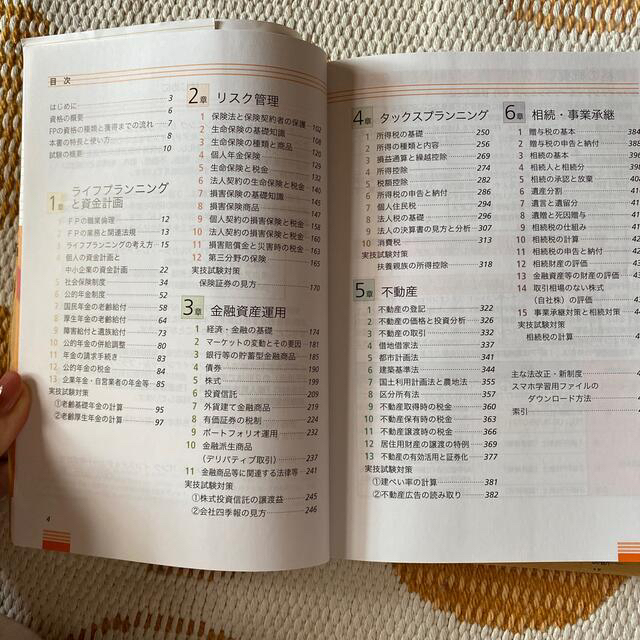 目 次
はじめに 3
資格の概要 6
FPの資格の種類と獲得までの流れ 7
本書の特長と使い方 8
試験の概要 10
1章 ライフプランニング
と資金計画
1 FPの職業倫理 12
2 FPの業務と関連法規 13
3 ライフプランニングの考え方 15
4 個人の資金計画と
中小企業の資金計画 22
5 社会保険制度 34
6 公的年金制度 52
7 国民年金の老齢給付 58
8 厚生年金の老齢給付 64
9 障害給付と遺族給付 73
10 公的年金の併給調整 80
11 年金の請求手続き 83
12 公的年金の税金 84
13 企業年金・自営業者の年金等 85
実技試験対策
①老齢基礎年金の計算 95
②老齢厚生年金の計算 97
4
2章 リスク管理
1 保険法と保険契約者の保護 102
2 生命保険の基礎知識 108
3 生命保険の種類と商品
4 個人年金保険
5 生命保険と税金 132
6 法人契約の生命保険と税金 140
7 損害保険の基礎知識 145
8 損害保険商品 147
9 個人契約の損害保険と税金
10 法人契約の損害保険と税金 160
11 損害賠償金と災害時の税金 163
12 第三分野の保険 165
実技試験対策
保険証券の見方 170
3章 金融資産運用
1 経済・金融の基礎 174
2 マーケットの変動とその要因 181
3 銀行等の貯蓄型金融商品 185
4 債券 190
5 株式 199
6 投資信託 209
7 外貨建て金融商品 219
8 有価証券の税制 224
9 ポートフォリオ運用 232
10 金融派生商品
(デリバティブ取引) 237
11 金融商品等に関連する法律等 241
実技試験対策
①株式投資信託の譲渡益 245
②会社四季報の見方 246
4章 タックスプランニング
1 所得税の基礎 250
2 所得の種類と内容 256
3 損益通算と繰越控除 269
4 所得控除 274
5 税額控除 282
6 所得税の申告と納付 286
7 個人住民税 294
8 法人税の基礎 296
9 法人の決算書の見方と分析 307
10 消費税 313
実技試験対策
扶養親族の所得控除 318
5章 不動産
1 不動産の登記 322
2 不動産の価格と投資分析 326
3 不動産の取引 332
4 借地借家法 337
5 都市計画法 341
6 建築基準法 344
7 国土利用計画法と農地法 355
8 区分所有法 357
9 不動産取得時の税金 360
10 不動産保有時の税金 363
11 不動産譲渡時の税金 366
12 居住用財産の譲渡の特例 369
13 不動産の有効活用と証券化 377
実技試験対策
①建ぺい率の計算 381
②不動産広告の読み取り 382
6章 相続・事業承継
1 贈与税の基本
2 贈与税の申告と納付
3 相続税の基本
4 相続人と相続分
5 相続の承認と放棄
6 遺産分割
7 遺言と遺留分
8 遺贈と死因贈与
9 相続税の仕組み
10 相続税の計算
11 相続税の申告と納付
12 相続財産の評価
13 金融資産等の財産の評価
14 取引相場のない株式
(自社株)の評価
15 事業承継対策と相続対策
実技試験対策
相続税の計算
主な法改正・新制度
スマホ学習用ファイルの
ダウンロード方法
索引